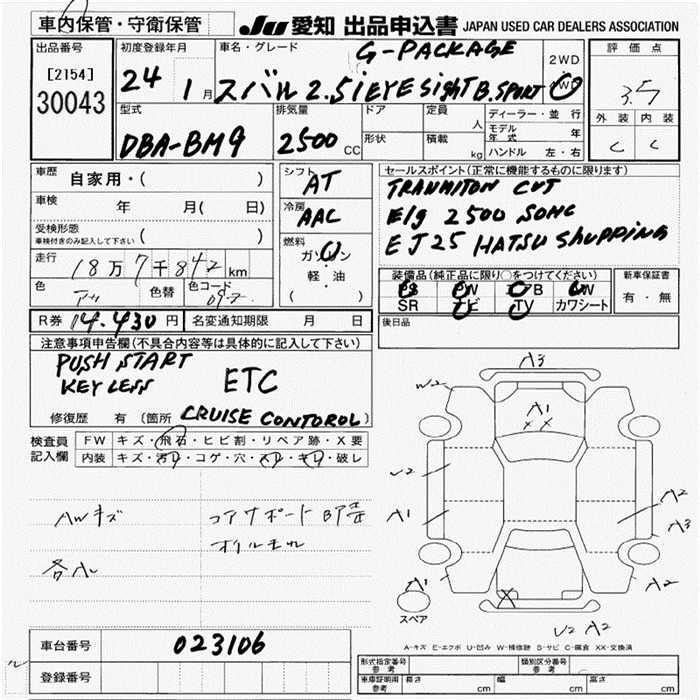 車内保管・守衛保管
JU 愛知 出品申込書 JAPAN USED CAR DEALERS ASSOCIATION
出品番号
[2154]
30043
初度登録年月
24 1 月
車名・グレード G-PACKAGE
スバル 2.5i EYE SIGHT B.SPORT
2WD
4WD
評価点
3.5
外装 内装
C C
型式
DBA-BM9
排気量
2500 CC
ドア
形状
定員 人
積載 kg
ディーラー・並行
モデル年式 年
ハンドル 左・右
車歴 自家用・( )
車検 年 月( 日)
受検形態
車検付きのみ記入して下さい ( )
走行
18万7千842km
色 色替 色コード
シフト AT
冷房 AAC
燃料
ガソリン
軽・油
( )
セールスポイント(正常に機能するものに限ります)
TRANMITON CVT
E/g 2500 SOHC
EJ25 HATSU SHUPPING
装備品(純正品に限り○をつけてください)
PS PW AB AW
SR ナビ TV カワシート
新車保証書
有・無
後日品
R券 14.430 円 名変通知期限 月 日
注意事項申告欄(不具合内容等は具体的に記入して下さい)
PUSH START
KEY LESS ETC
修復歴 有 (箇所 CRUISE CONTOROL)
検査員記入欄
FW キズ・飛石・ヒビ割・リペア跡・X要
内装 キズ・汚れ・コゲ・穴・スレ・キレ・破レ
AWキズ
オイルモレ
A3
W2
A1
XX
U2
A1
A2
A3
A1
X
A2
U2 A2
スペア
A-キズ E-エクボ U-凹み W-補修跡 S-サビ C-腐食 XX-交換済
車台番号 023106
登録番号
形式指定番号 参考
類別区分番号 参考
車庫証明用 参考 長さ cm 幅 cm 高さ cm